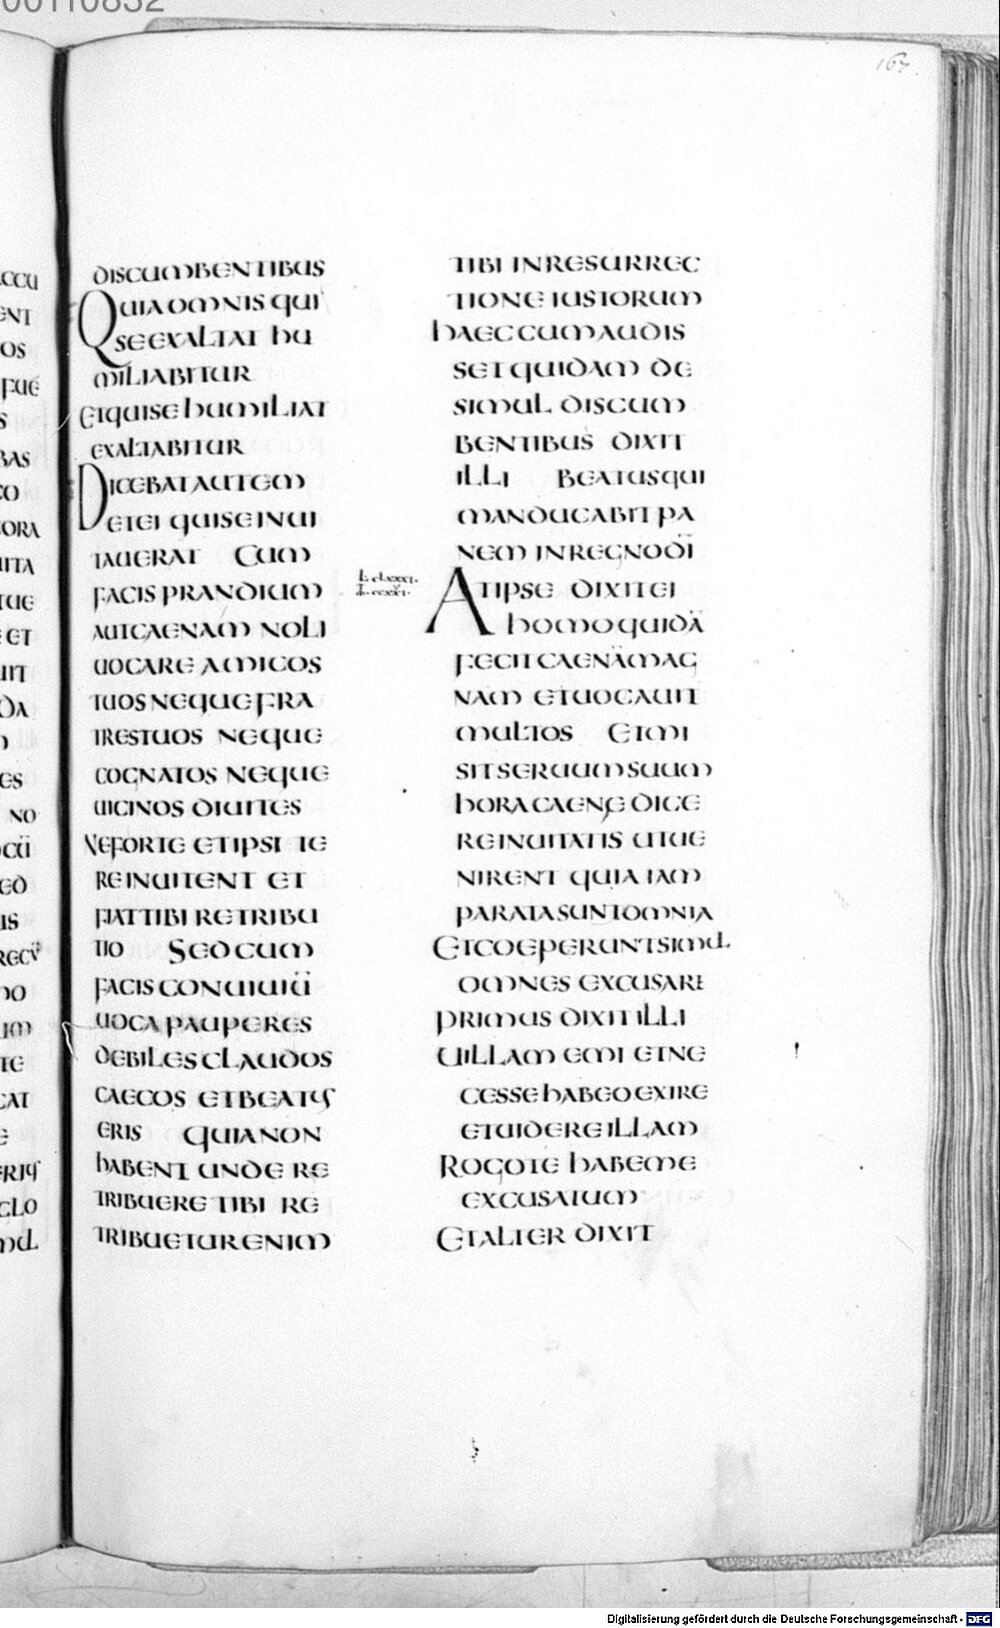 00110832
167.
DISCUMBENTIBUS
QUIA OMNIS QUI
SE EXALTAT HU
MILIABITUR
ET QUI SE HUMILIAT
EXALTABITUR
DICEBAT AUTEM
ET EI QUI SE INUI
TAUERAT CUM
FACIS PRANDIUM
AUT CAENAM NOLI
UOCARE AMICOS
TUOS NEQUE FRA
TRES TUOS NEQUE
COGNATOS NEQUE
UICINOS DIUITES
NE FORTE ET IPSI TE
REINUITENT ET
FIAT TIBI RETRIBU
TIO SED CUM
FACIS CONUIUIŪ
UOCA PAUPERES
DEBILES CLAUDOS
CAECOS ET BEATUS
ERIS QUIA NON
HABENT UNDE RE
TRIBUERE TIBI RE
TRIBUETUR ENIM
TIBI IN RESURREC
TIONE IUSTORUM
HAEC CUM AUDIS
SET QUIDAM DE
SIMUL DISCUM
BENTIBUS DIXIT
ILLI BEATUS QUI
MANDUCABIT PA
NEM IN REGNO DĪ
L. clxxxi.
AT IPSE DIXIT EI
HOMO QUIDĀ
FECIT CAENĀ MAG
NAM ET UOCAUIT
MULTOS ET MI
SIT SERUUM SUUM
HORA CAENĘ DICE
RE INUITATIS UT UE
NIRENT QUIA IAM
PARATA SUNT OMNIA
ET COEPERUNT SIMUL
OMNES EXCUSARE
PRIMUS DIXIT ILLI
UILLAM EMI ET NE
CESSE HABEO EXIRE
ET UIDERE ILLAM
ROGO TE HABE ME
EXCUSATUM
ET ALTER DIXIT
Digitalisierung gefördert durch die Deutsche Forschungsgemeinschaft - DFG